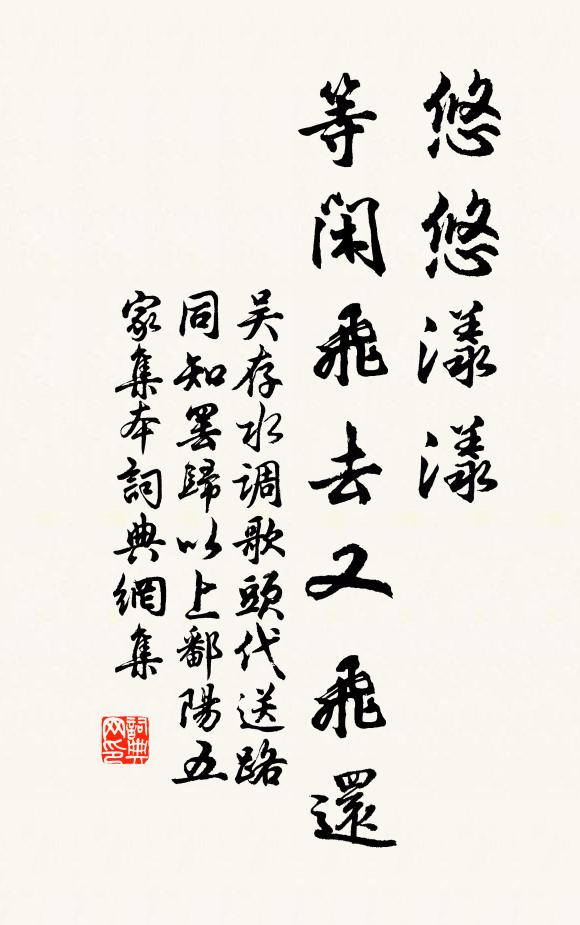 悠悠漾漾
等闲飛去又飛還
吴存水调歌頭代送路
同知罢歸以上鄱陽五
家集本詞典網集
詞典网印